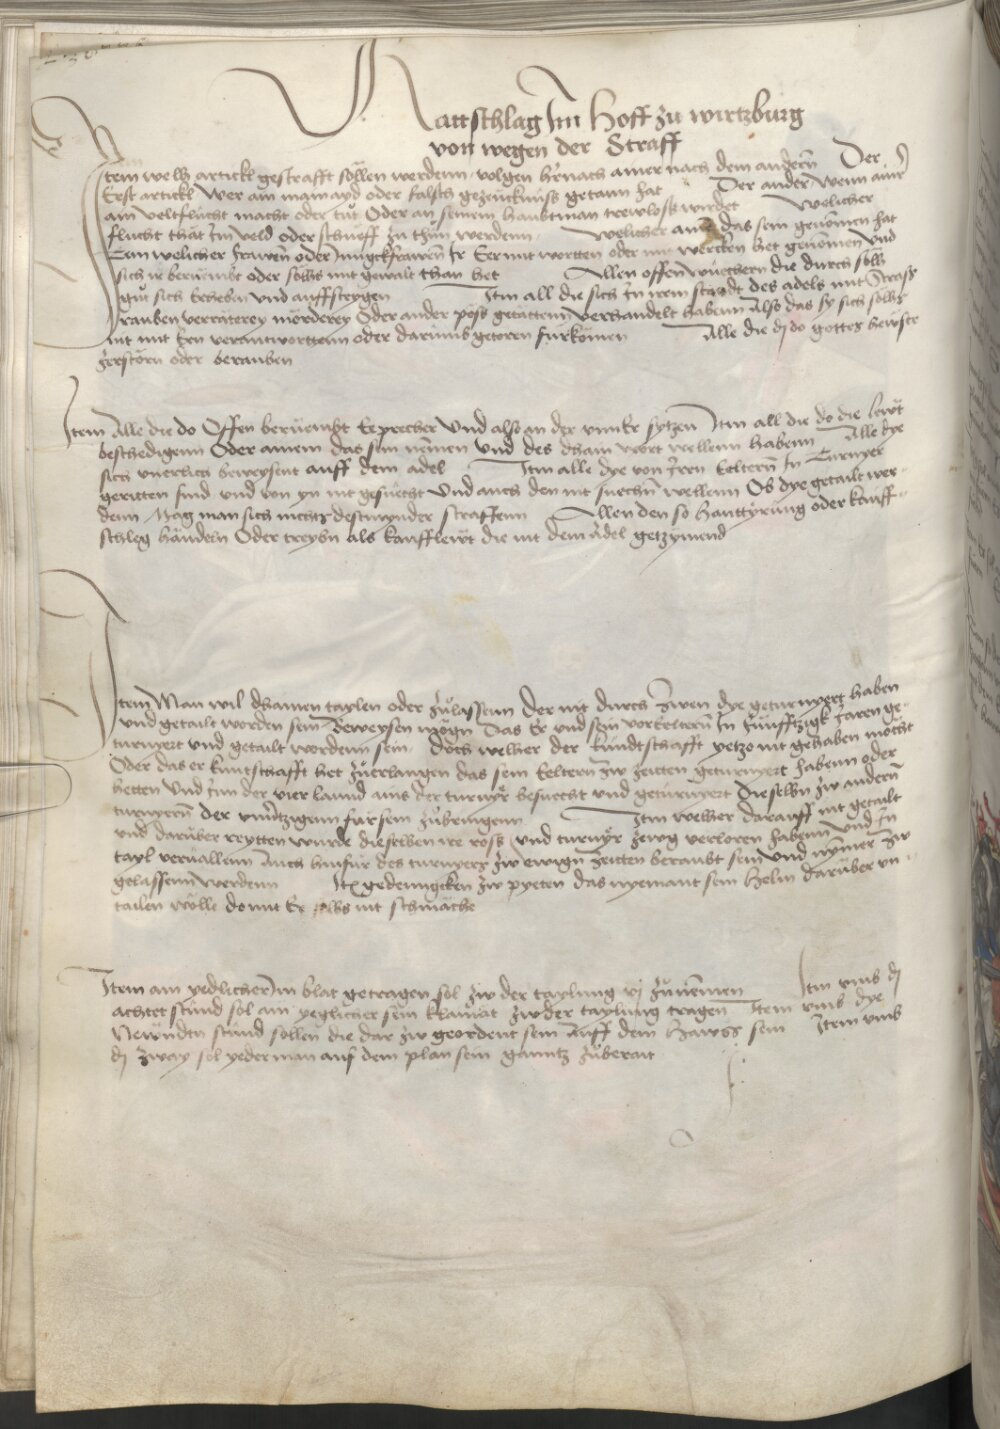 Rattschlag Im Hoff zu wirtzburg
von wegen der Straff
Item welh artickl gestrafft söllen werdenn volgen hernach ainer nach dem andern Der
Erst artickl Wer ain mainayd oder falsch gezeucknuss getann hat Der ander wenn ainr
ain veltflucht macht oder tut Oder an seinem haubtman trewloss wirdet Welicher
flucht thät Im veld oder schueff zu thun werdenn Welicher das sein genomen hat
Eem welicher frawen oder Junngkfrawen Ir Eer mit wortten oder mit wercken het genomen Und
sich ir beruembt oder solhs mit gewalt than het Allen offen wuechern die durch solh
sich Erheben und auffsteygen Itm all die sich In irem standt des adels mit Strass
rauben verräterey mörderey Oder ander pöss getättenn verhandelt habenn Also das sy sich sollhs
nit mit Ern verantworttenn oder darumb getoren fürkomen Alle die do gottes hewser
zerstörn oder berauben
Item Alle die do Offen beruembt Eeprecher Und also an der unnEe sytzen Itm all die do die lewt
beschedigenn Oder ainem das sein nemen Und des dhain wort wellenn habenn Alle dye
sich unerlich beweysent auff dem adel Itm alle dye von Iren Eelternn In Turnyer
geritten sind und von yn nit gesuecht Und auch den nit suechn wellenn Ob dye getailt wer-
denn Mag man sich nichts destmynder straffenn Allen den so hanttyrung oder kauff-
schleg händeln Oder treybn als kauffleẅt die nit dem Adel getzymend
Item Man wil dhainen taylen oder zulassenn Der nit durch Zwen dye geturnyert haben
und getailt worden sein Beweysen mögn Das Er und sein vorEelternn In funfftzigk Jaren ge-
turnyert und getailt wordenn sein Doch welher der kundtschafft yetzo nit gehaben möcht
Oder das er kuntschafft het zuerlangen das sein Eelternn zw zeitten geturnyert habenn oder
hetten Und Inn der vier lannd ains der turnyr besuecht und geturnyert Dieselbn zw andern
turnyernn der fur sein zubringenn Itm welher darauff nit getailt
und daruber reytten wurde dieselben ire ross und turnyr zewg verloren habenn Und In
tayl verfallenn Auch hinfür des turnyers zw ewign zeitten beraubt sein und nymer zw
gelassenn werdenn Itm gedenngken zw pyeten das nyemant sein Helm daruber un-
tailen wölle domit Er solhs nit schmäche
Item ain yedlicher Im blat getragen sol zw der taylung vj zunemen Itm umb dj
achtet stund sol ain yeglicher sein klainat zw der taylung tragen Item umb dye
Neẅndtn stund sollen die dar zw geordent sein Auff dem Hawss sein Item umb
dj zway sol yederman auf dem plan sein ganntz zuberait